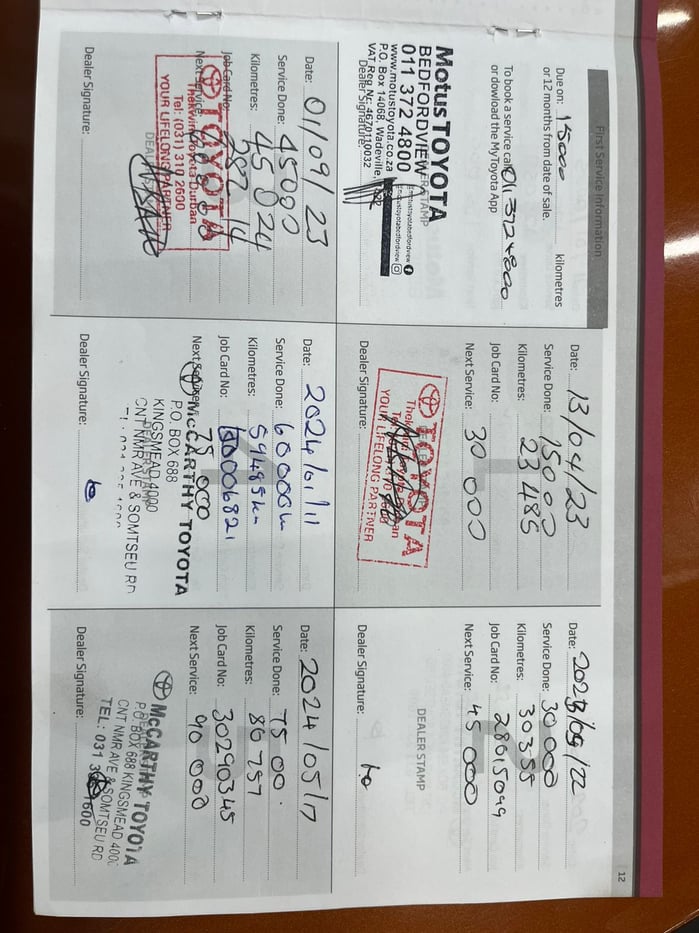 12
First Service Information
Due on: 15000 kilometres
or 12 months from date of sale.
To book a service call 011 372 4800
or dowload the MyToyota App
Motus TOYOTA
BEDFORDVIEW
011 372 4800
www.motustoyota.co.za
P.O. Box 14068, Wadeville,
VAT Reg Nr: 4670110032
Dealer Signature:
Date: 13/04/23
Service Done: 15000
Kilometres: 23 485
Job Card No:
Next Service: 30 000
TOYOTA
YOUR LIFELONG PARTNER
Dealer Signature:
Date: 2023/05/22
Service Done: 30 000
Kilometres: 30355
Job Card No: 28615099
Next Service: 45 000
DEALER STAMP
Dealer Signature:
Date: 01/09/23
Service Done: 45000
Kilometres: 45 024
Job Card No:
Next Service:
TOYOTA
Thekwini Toyota Durban
Tel: (031) 310 2600
YOUR LIFELONG PARTNER
Dealer Signature:
Date: 2024/01/11
Service Done: 60 000km
Kilometres: 59485km
Job Card No:
Next Service: 75 000
McCARTHY TOYOTA
P.O. BOX 688
KINGSMEAD 4000
CNT NMR AVE & SOMTSEU RD
Dealer Signature:
Date: 2024/05/17
Service Done: 75 00.
Kilometres: 86 757
Job Card No: 30290345
Next Service: 90 000
McCARTHY TOYOTA
P.O BOX 688 KINGSMEAD 4000
CNT NMR AVE & SOMTSEU RD
TEL: 031
Dealer Signature: